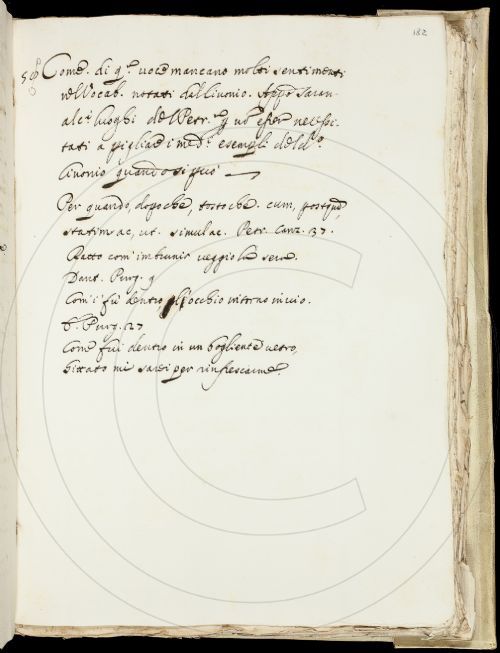 182
58 Come. di q.ª voce mancano molti sentimenti
nel Vocab. notati dal Livonio. App.º saran-
alc.i luoghi del Petr.
tati a pigliare i med.i esempli del d.º
Livonio quando si può
Per quando, dopoche, tostoche. cum, postquã,
statim ac, ut. simulac. Petr. Canz. 37.
Ratto com' imbrunir veggio la sera.
Dant. Purg. 9
Com' i' fui dentro l'occhio intorno invio.
E Purg. 27
Come fui dentro in un bogliente vetro,
Gittato mi sarei per rinfrescarme.